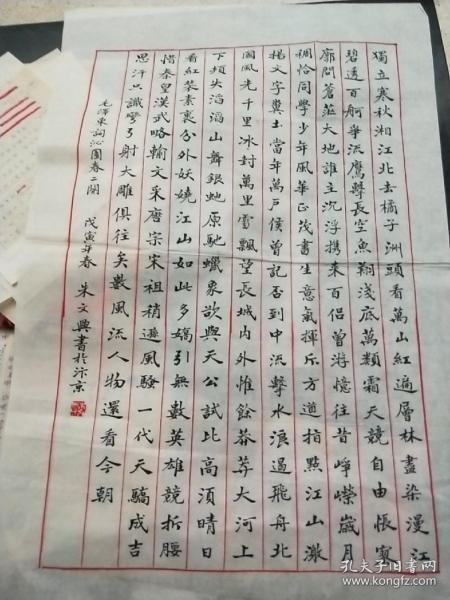 獨立寒秋湘江北去橘子洲頭看萬山紅遍層林盡染漫江
碧透百舸爭流鷹擊長空魚翔淺底萬類霜天競自由悵寥
廓問蒼茫大地誰主沉浮攜來百侶曾游憶往昔崢嶸歲月
稠恰同學少年風華正茂書生意氣揮斥方遒指點江山激
揚文字糞土當年萬戶侯曾記否到中流擊水浪遏飛舟北
國風光千里冰封萬里雪飄望長城內外惟餘莽莽大河上
下頓失滔滔山舞銀虵原馳蠟象欲與天公試比高須晴日
看紅裝素裹分外妖嬈江山如此多嬌引無數英雄競折腰
惜秦皇漢武略輸文采唐宗宋祖稍遜風騷一代天驕成吉
思汗只識彎弓射大雕俱往矣數風流人物還看今朝
毛澤東詞沁園春二闋 戊寅年春 朱文興書於汴京
孔夫子旧书网
www.kongfz.com